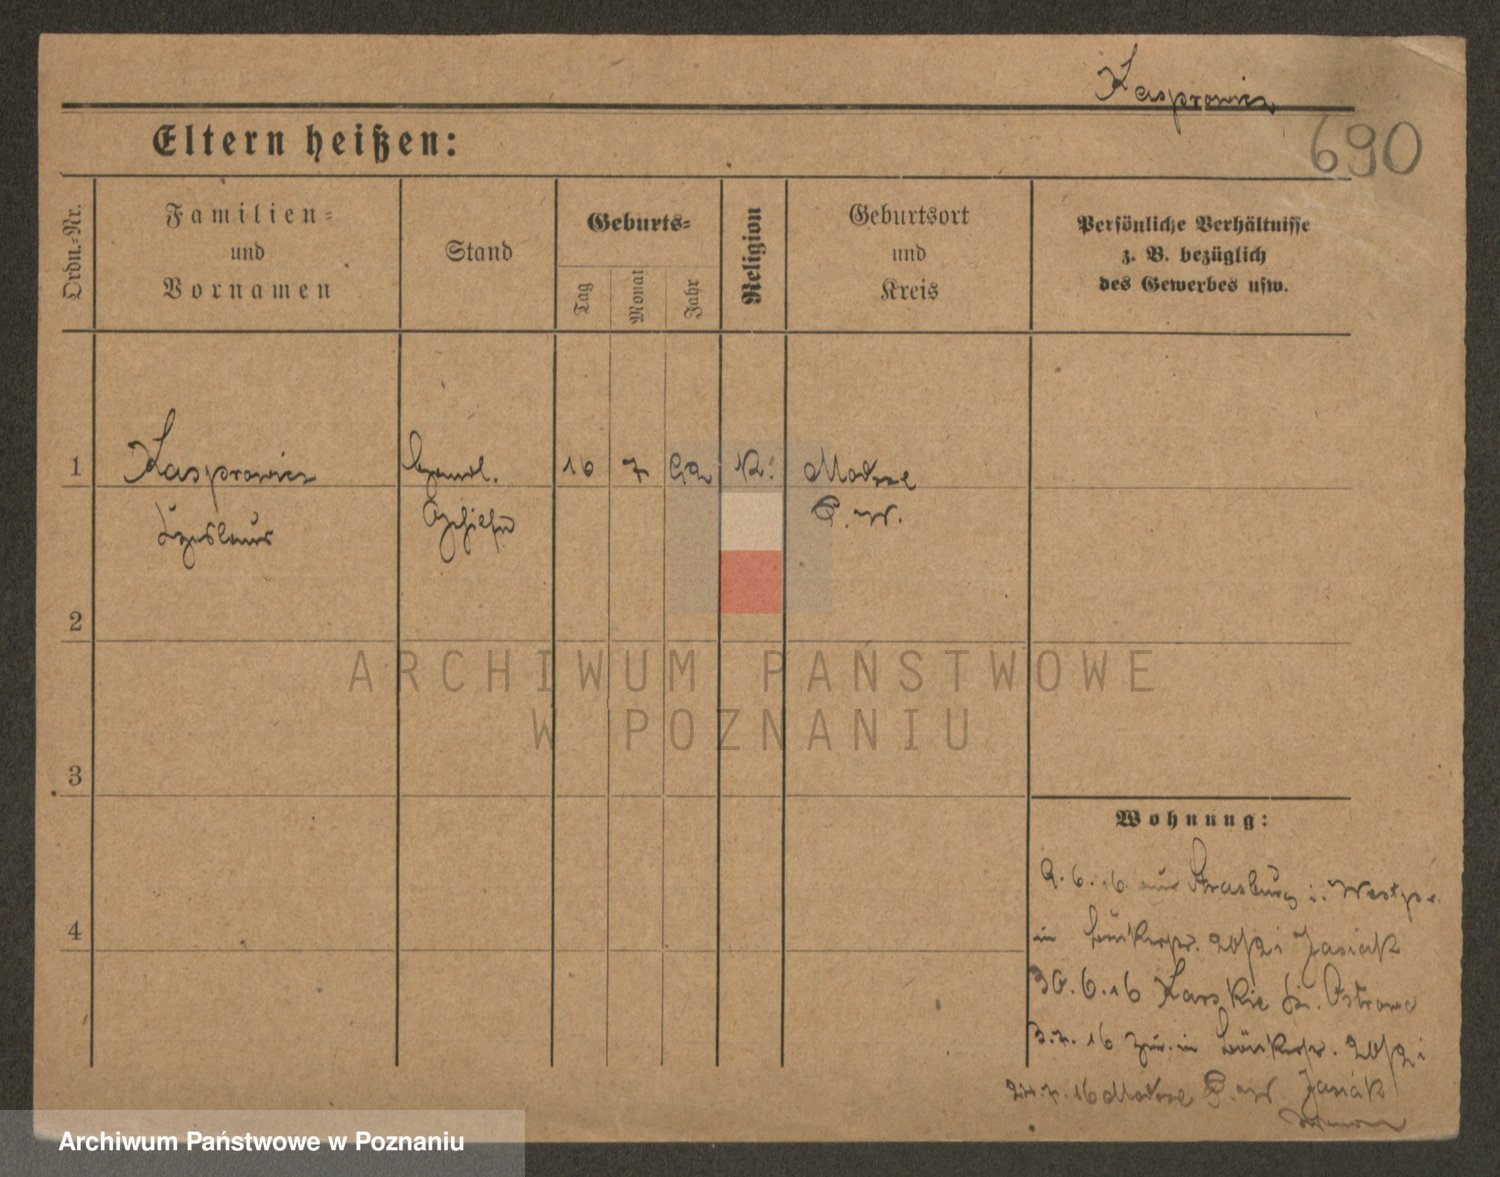 Kasprowicz
690
Eltern heißen:
Ordn.-Nr.
Familien-
und
Vornamen
Stand
Geburts-
Tag
Monat
Jahr
Religion
Geburtsort
und
Kreis
Persönliche Verhältnisse
z. B. bezüglich
des Gewerbes usw.
1
Kasprowicz
Handl.
16
7
92
K.
Modrze
Czeslaus
Gehilfe
P. W.
2
ARCHIWUM PAŃSTWOWE
W POZNANIU
3
Wohnung:
4
9. 6. 16 aus Strasburg i. Westpr.
in 20/21 Jasiak
30. 6. 16 Ostrowo
3. 7. 16 zur. in 20/21
7. 16 Modrze P. W. Jasiak
Archiwum Państwowe w Poznaniu